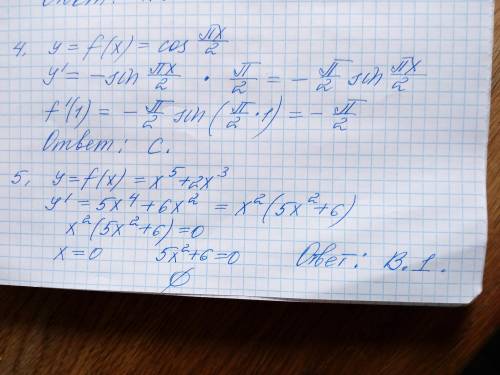 4. y = f(x) = cos πx/2
y' = -sin πx/2 · π/2 = - π/2 sin πx/2
f'(1) = - π/2 sin(π/2 · 1) = - π/2
Ответ: C.
5. y = f(x) = x⁵ + 2x³
y' = 5x⁴ + 6x² = x²(5x² + 6)
x²(5x² + 6) = 0
x = 0 5x² + 6 = 0
∅
Ответ: B. 1.